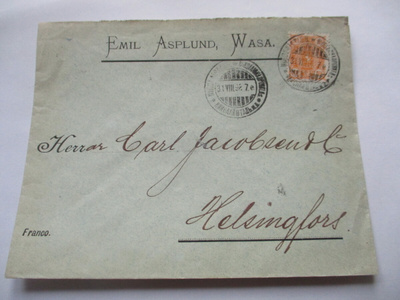 Emil Asplund, Wasa.
31.VIII.
7.e
Herrar Carl Jacobsen & Co
Helsingfors.
Franco.